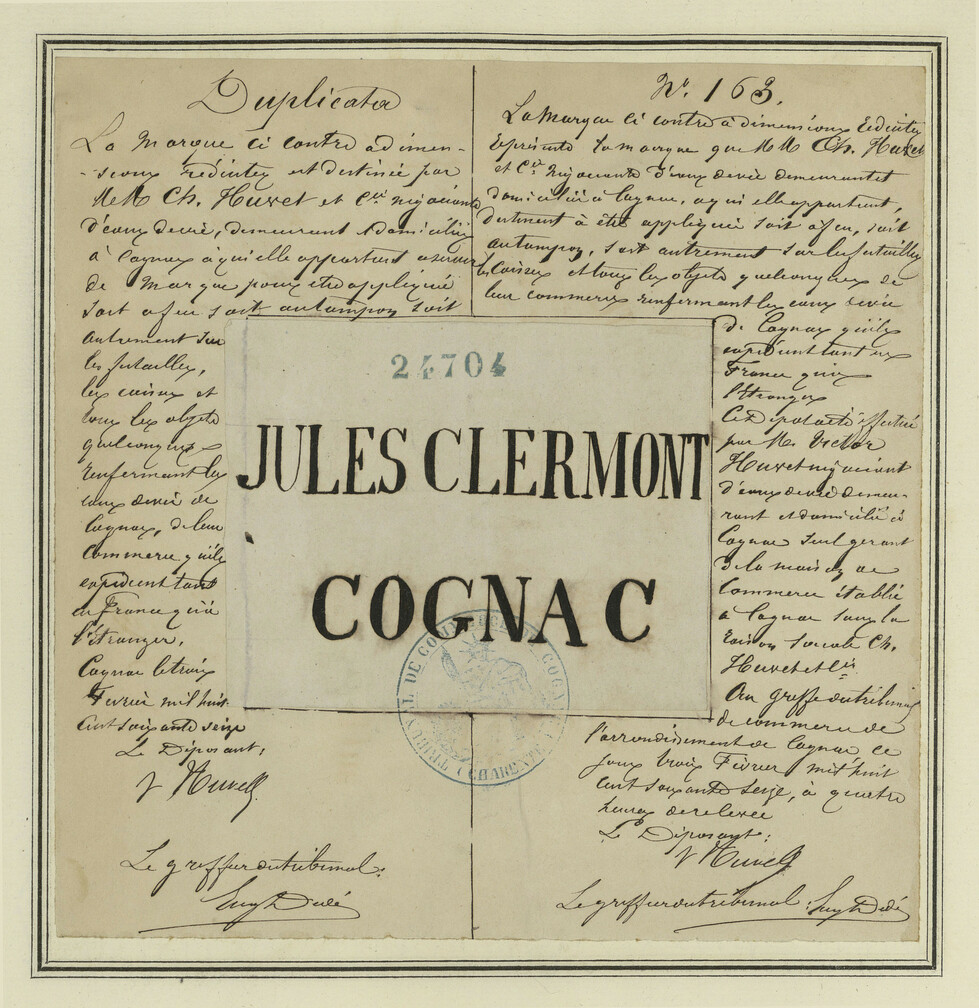 Duplicata
La marque ci contre a dimen-
-sions réduites est destinée par
MM Ch. Huvet et Cie négociants
d'eaux de vie, demeurant et domiciliés
à Cognac à qui elle appartient a servir
de marque pour être appliquée
soit a feu soit au tampon soit
autrement sur
les futailles,
les caisses et
tous les objets
quelconques
renfermant les
eaux de vie de
Cognac, de leur
commerce qu'ils
expédient tant
en France qu'à
l'étranger.
Cognac le trois
Février mil huit
cent soixante seize
Le Déposant:
V Huvet
Le greffier du tribunal:
No. 163.
La marque ci contre à dimensions réduites
représente la marque que MM Ch. Huvet
et Cie négociants d'eaux de vie demeurant et
domiciliés à Cognac, a qui elle appartient,
destinent à être appliquée soit a feu, soit
au tampon, soit autrement sur les futailles
les caisses et tous les objets quelconques de
leur commerce renfermant les eaux de vie
de Cognac qu'ils
expédient tant en
France qu'à
l'étranger
Cet dépôt a été effectué
par M. Victor
Huvet négociant
d'eaux de vie demeu-
rant et domicilié à
Cognac seul gérant
de la maison de
commerce établie
à Cognac sous la
raison sociale Ch.
Huvet et Cie
Au greffe du tribunal
de commerce de
l'arrondissement de Cognac ce
jour trois Février mil huit
cent soixante seize, à quatre
heures de relevée
Le Déposant:
V Huvet
Le greffier du tribunal:
24704
JULES CLERMONT
COGNAC
TRIBUNAL DE COMMERCE DE COGNAC
(CHARENTE)